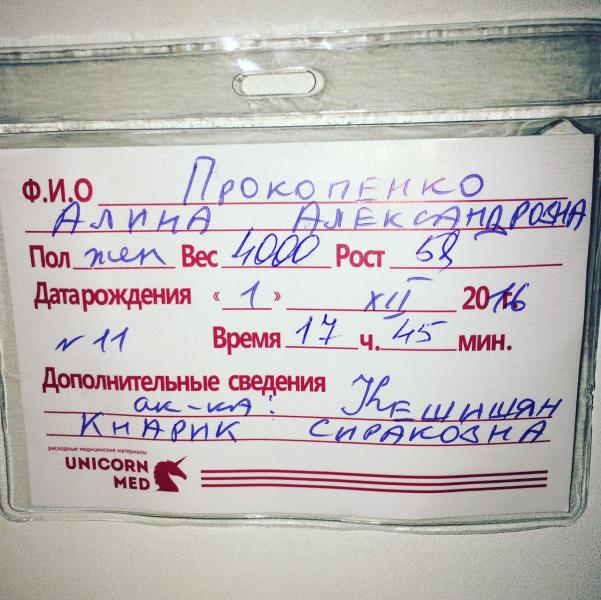 Ф.И.О ПРОКОПЕНКО
АЛИНА АЛЕКСАНДРОВНА
Пол жен Вес 4000 Рост 58
Дата рождения « 1 » XII 2016 г.
N 11 Время 17 ч. 45 мин.
Дополнительные сведения
ак-ка: КЕШИШЯН
КНАРИК СИРАКОВНА
расходные медицинские материалы
UNICORN
MED